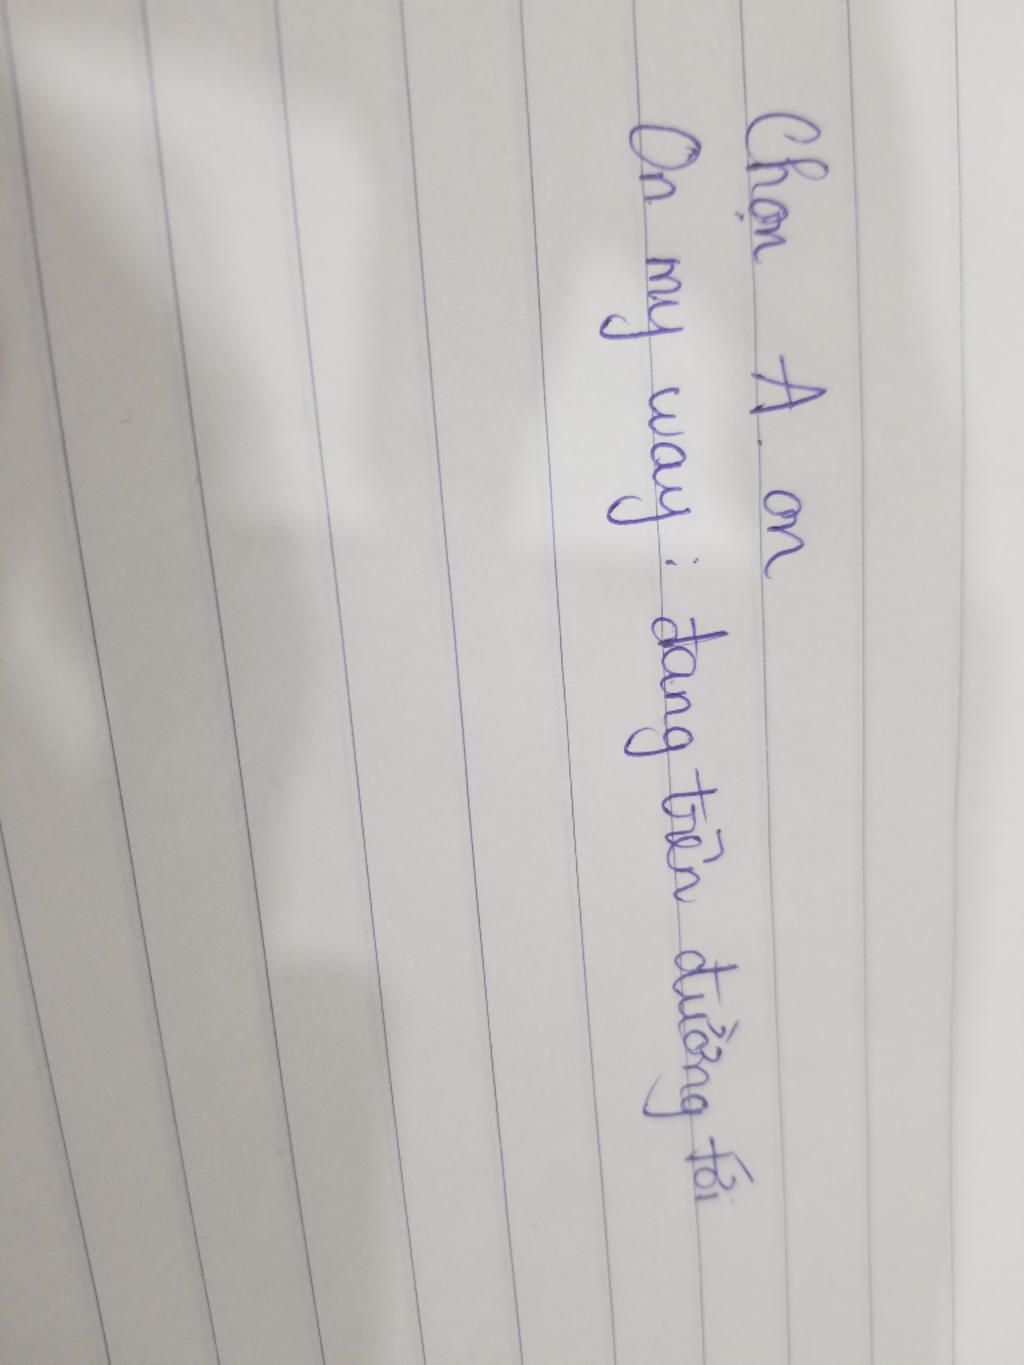 Chọn A. on
On my way: đang trên đường tới